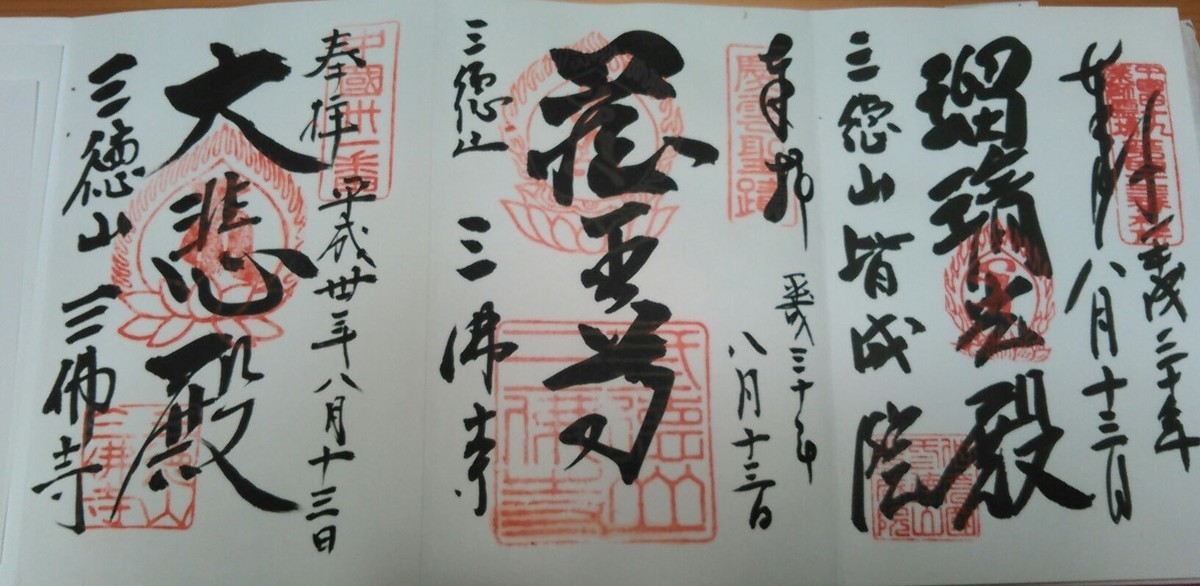 奉拝
平成三十年
八月十三日
瑠璃光殿
三徳山皆成院
慶雲聖蹟
奉拝
平成三十年
八月十三日
蔵王尊
三徳山
三佛寺
三徳山三佛寺
中國卅一番
奉拝
平成卅年八月十三日
大悲殿
三徳山三佛寺